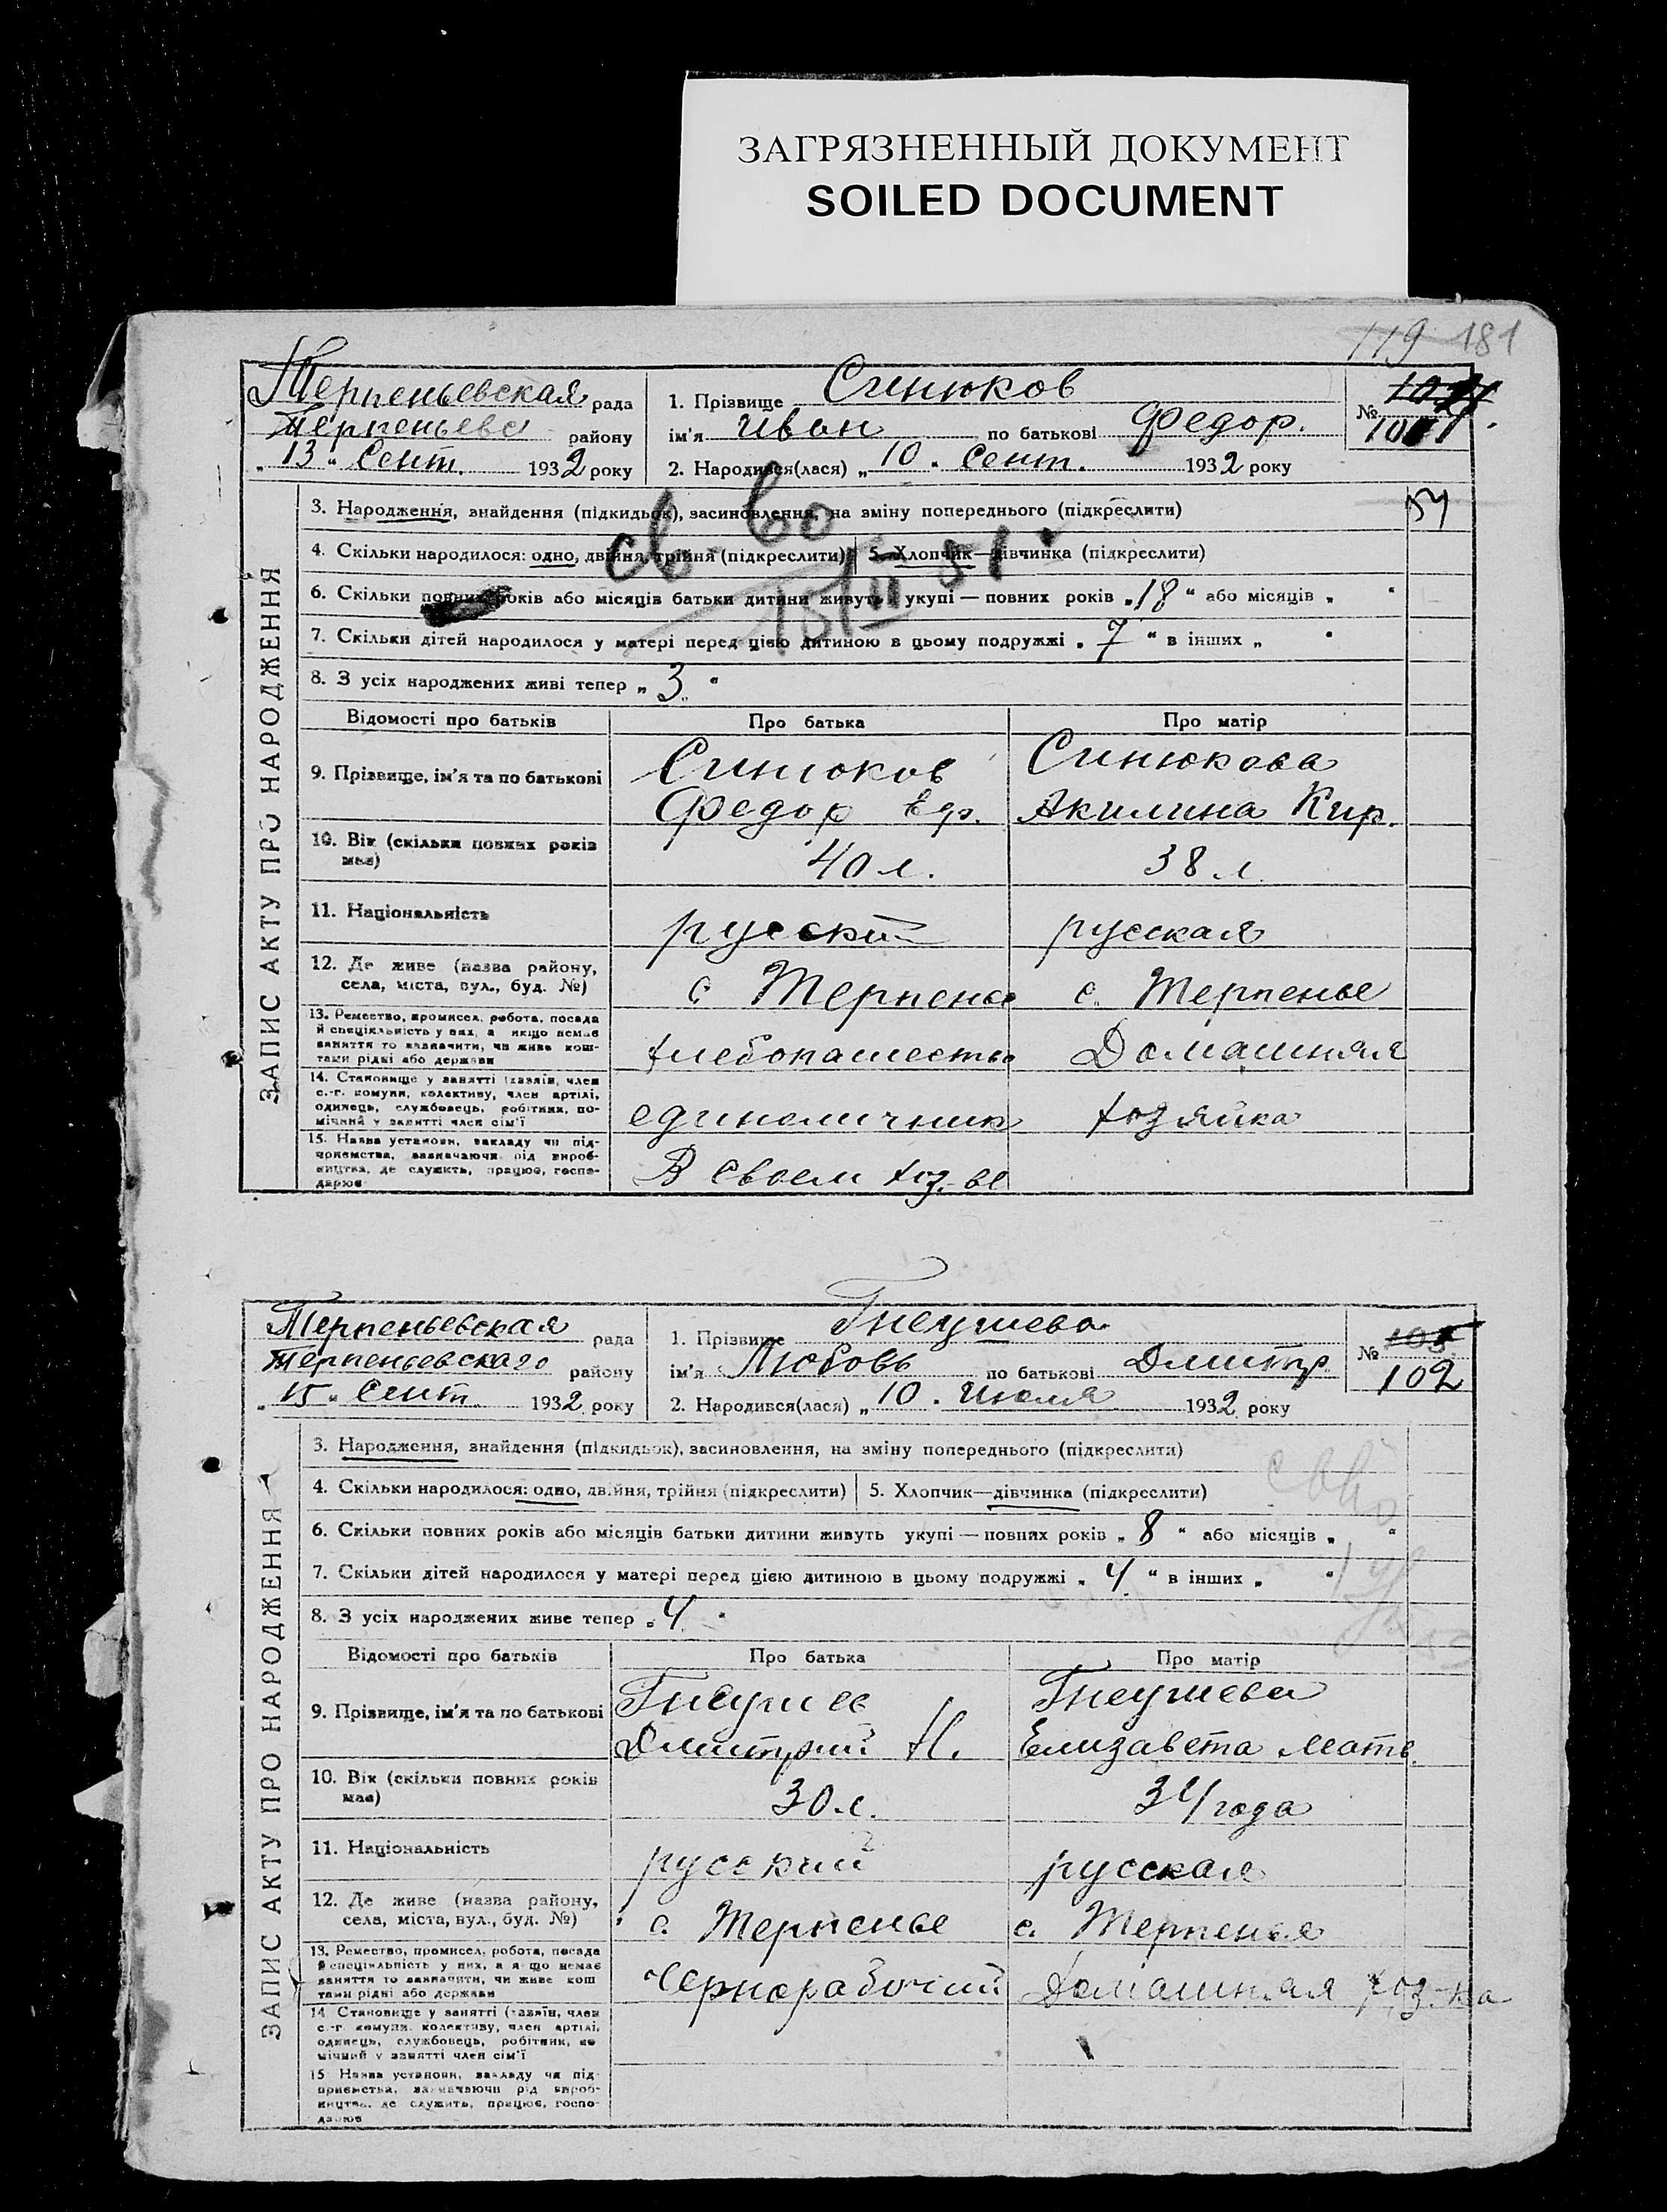 ЗАГРЯЗНЕННЫЙ ДОКУМЕНТ
SOILED DOCUMENT
119 181
Терпеньевская рада
Терпеньевс району
„13“ Сент. 1932 року
1. Прізвище Синюков
ім'я Иван по батькові Федор.
2. Народився(лася) „10“ Сент. 1932 року
№
101
ЗАПИС АКТУ ПРО НАРОДЖЕННЯ
3. Народження, знайдення (підкидьок), засиновлення, на зміну попереднього (підкреслити)
св-во
4. Скільки народилося: одно, двійня, трійня (підкреслити) 5. Хлопчик—дівчинка (підкреслити)
15/II 51
6. Скільки повних років або місяців батьки дитини живуть укупі — повних років „18“ або місяців „ “
7. Скільки дітей народилося у матері перед цією дитиною в цьому подружжі „7“ в інших „ “
8. З усіх народжених живі тепер „3“
Відомості про батьків Про батька Про матір
9. Прізвище, ім'я та по батькові Синюков Синюкова
Федор Ефр. Акилина Кир.
10. Вік (скільки повних років має) 40 л. 38 л.
11. Національність русский русская
12. Де живе (назва району, села, міста, вул., буд. №) с Терпенье с. Терпенье
13. Ремество, промисел, робота, посада й спеціяльність у них, а якщо немає заняття то зазначити, чи живе коштами рідні або держави хлебопашество Домашняя
14. Становище у занятті (хазяїн, член с.-г. комуни, колективу, член артілі, одинець, службовець, робітник, помічний у занятті член сім'ї единоличник хозяйка
15. Назва установи, закладу чи підприємства, зазначаючи рід виробництва, де служить, працює, господарює В своем хоз-ве
Терпеньевская рада
Терпеньевскаго району
„15“ Сент. 1932 року
1. Прізвище Гнеушева
ім'я Любовь по батькові Дмитр.
2. Народився(лася) „10“ Июля 1932 року
№ 103
102
ЗАПИС АКТУ ПРО НАРОДЖЕННЯ
3. Народження, знайдення (підкидьок), засиновлення, на зміну попереднього (підкреслити)
4. Скільки народилося: одно, двійня, трійня (підкреслити) 5. Хлопчик—дівчинка (підкреслити)
6. Скільки повних років або місяців батьки дитини живуть укупі — повних років „8“ або місяців „ “
7. Скільки дітей народилося у матері перед цією дитиною в цьому подружжі „4“ в інших „ “
8. З усіх народжених живе тепер „4“
Відомості про батьків Про батька Про матір
9. Прізвище, ім'я та по батькові Гнеушев Гнеушева
Дмитрий Н. Елизавета Матв.
10. Вік (скільки повних років має) 30 л. 34 года
11. Національність русский русская
12. Де живе (назва району, села, міста, вул., буд. №) с. Терпенье с. Терпенья
13. Ремество, промисел, робота, посада й спеціяльність у них, а якщо немає заняття то зазначити, чи живе коштами рідні або держави Чернорабочий Домашняя хоз-ка
14. Становище у занятті (хазяїн, член с.-г. комуни, колективу, член артілі, одинець, службовець, робітник, помічний у занятті член сім'ї
15. Назва установи, закладу чи підприємства, зазначаючи рід виробництва, де служить, працює, господарює